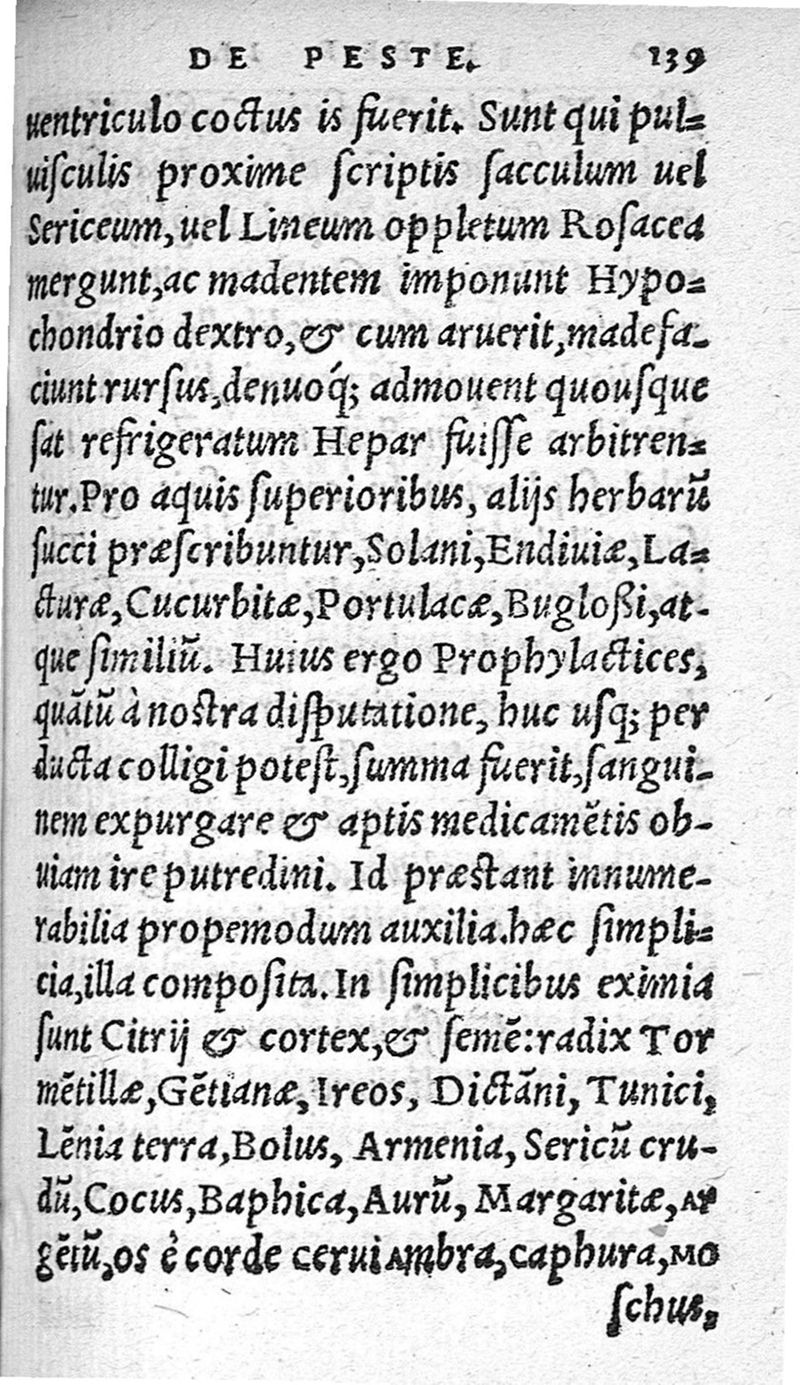 DE PESTE. 139
uentriculo coctus is fuerit. Sunt qui pul=
uiſculis proxime ſcriptis ſacculum uel
Sericeum, uel Lineum oppletum Roſacea
mergunt, ac madentem imponunt Hypo=
chondrio dextro, & cum aruerit, madefa-
ciunt rurſus, denuoq́; admouent quouſque
ſat refrigeratum Hepar fuiſſe arbitren=
tur. Pro aquis ſuperioribus, alijs herbarū
ſucci præſcribuntur, Solani, Endiuiæ, La=
cturæ, Cucurbitæ, Portulacæ, Bugloßi, at-
que ſimiliū. Huius ergo Prophylactices,
quātū à noſtra diſputatione, huc uſq; per
ducta colligi poteſt, ſumma fuerit, ſangui-
nem expurgare & aptis medicamētis ob-
uiam ire putredini. Id præſtant innume-
rabilia propemodum auxilia. hæc ſimpli=
cia, illa compoſita. In ſimplicibus eximia
ſunt Citrij & cortex, & ſemē: radix Tor
mētillæ, Gētianæ, Ireos, Dictāni, Tunici,
Lēnia terra, Bolus, Armenia, Sericū cru-
dū, Cocus, Baphica, Aurū, Margaritæ, AR
gētū, os è corde cerui AMbra, caphura, MO
ſchus,